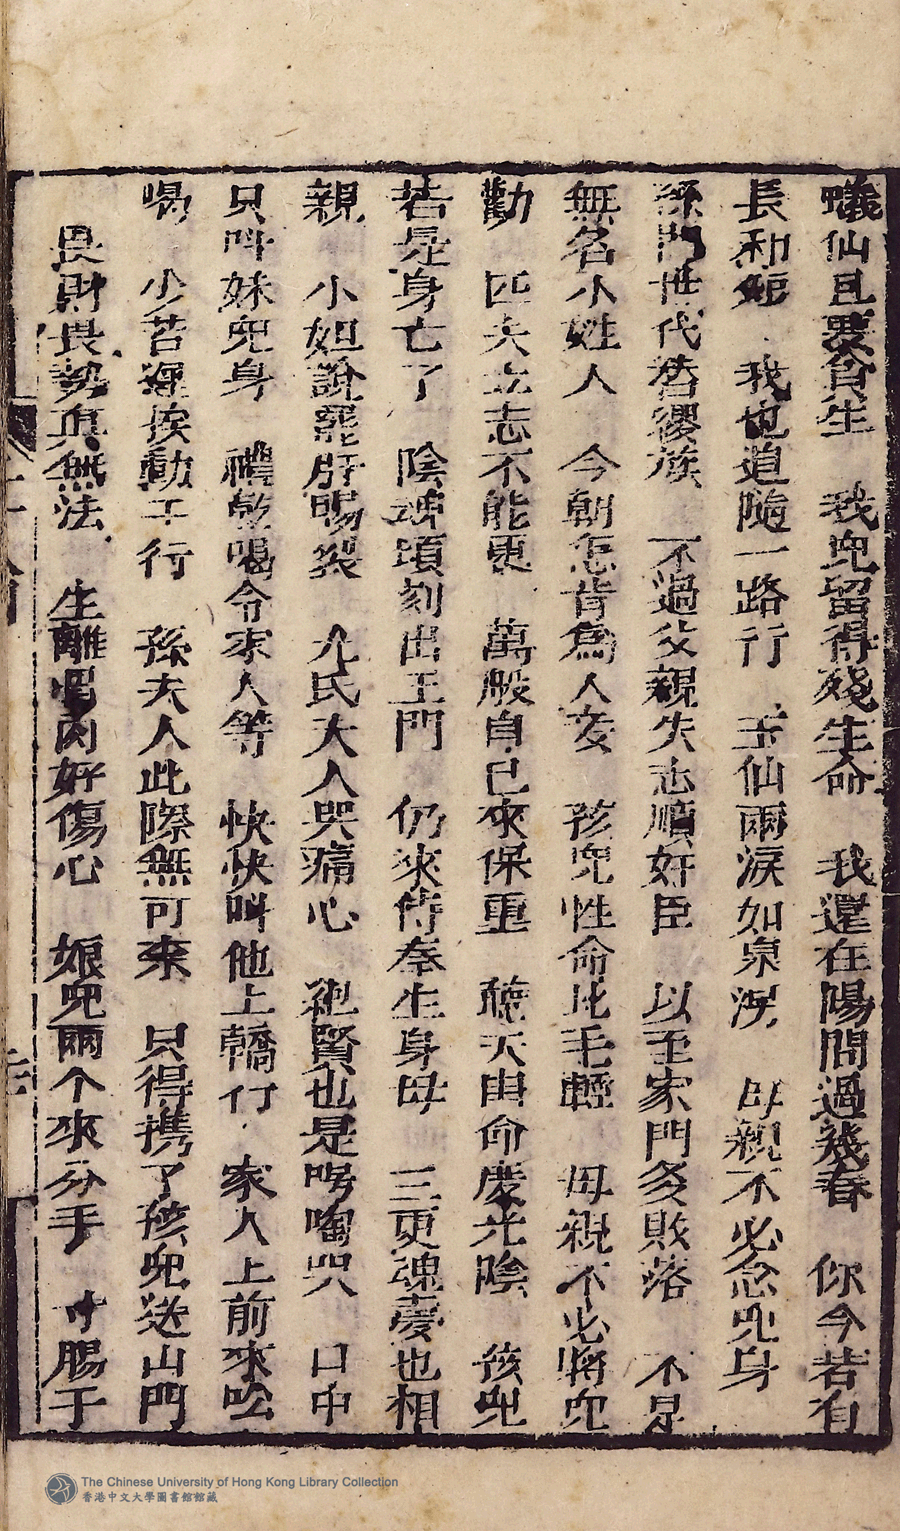 蟻仙且要貪生　我兜留得殘生命　我還在陽間過幾春　你今若有
長和短　我也道隨一路行　玉仙兩淚如泉湧　母親不必念兜身
孫門世代簪纓族　不過父親失志順奸臣　以至家門多敗落　不是
無名小姓人　今朝怎肯為人妾　孩兜性命比毛輕　母親不必將兜
勸　匹夫立志不能更　萬般自己來保重　聽天由命度光陰　孩兜
若是身亡了　陰魂頃刻出王門　仍來侍奉生身母　三更魂夢也相
親　小姐說罷肝腸裂　尤氏夫人哭痛心　絕賢也是嚎啕哭　口中
只叫妹兜身　禮乾喝令家人等　快快叫他上轎行　家人上前來吆
喝　少若遲挨動于行　孫夫人此際無可奈　只得携了孩兜送出門
畏財畏勢真無法　生離骨肉好傷心　娘兜兩个來分手　寸腸于
The Chinese University of Hong Kong Library Collection
香港中文大學圖書館館藏